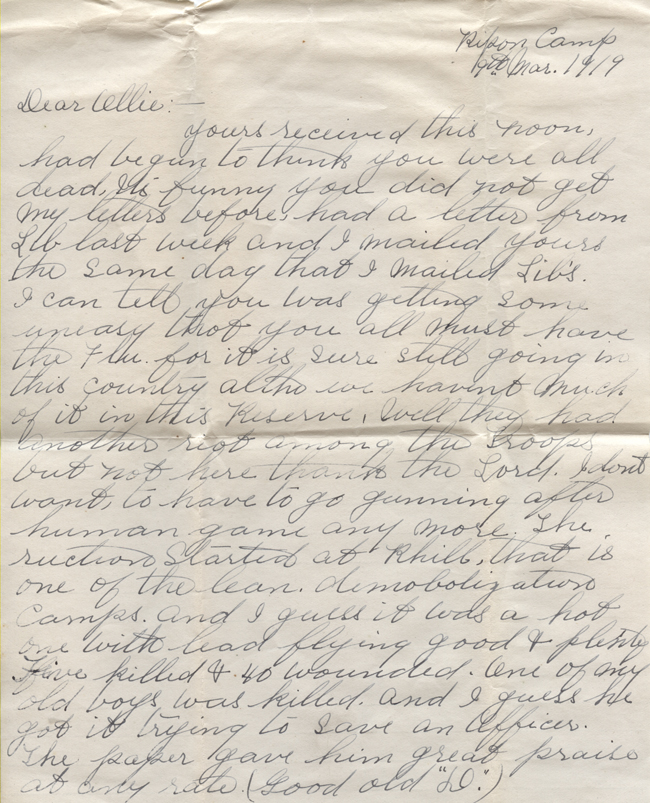 Ripon Camp
9th Mar. 1919
Dear Ollie:—
yours received this noon,
had begun to think you were all
dead, Its funny you did not get
my letters before. had a letter from
Lib last week and I mailed yours
the same day that I mailed Lib's.
I can tell you was getting some
uneasy that you all must have
the Flu. for it is sure still going in
this country altho we havent much
of it in this Reserve. Well they had
another riot among the troops
but not here thank the Lord. I dont
want, to have to go gunning after
human game any more. The
ruction started at Rhill, that is
one of the Can. demobolization
Camps. And I guess it was a hot
one with lead flying good & plenty
Five killed & 40 wounded. One of my
old boys was killed. and I guess he
got it trying to save an Officer.
The paper gave him great praise
at any rate. (Good old "D".)